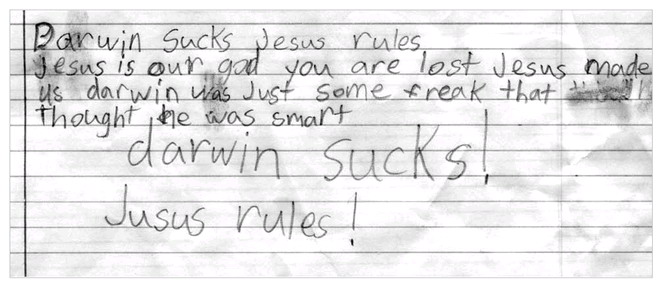 Darwin Sucks Jesus rules
Jesus is our god you are lost Jesus made
us darwin was Just some freak that
thought he was smart
darwin sucks!
Jusus rules!